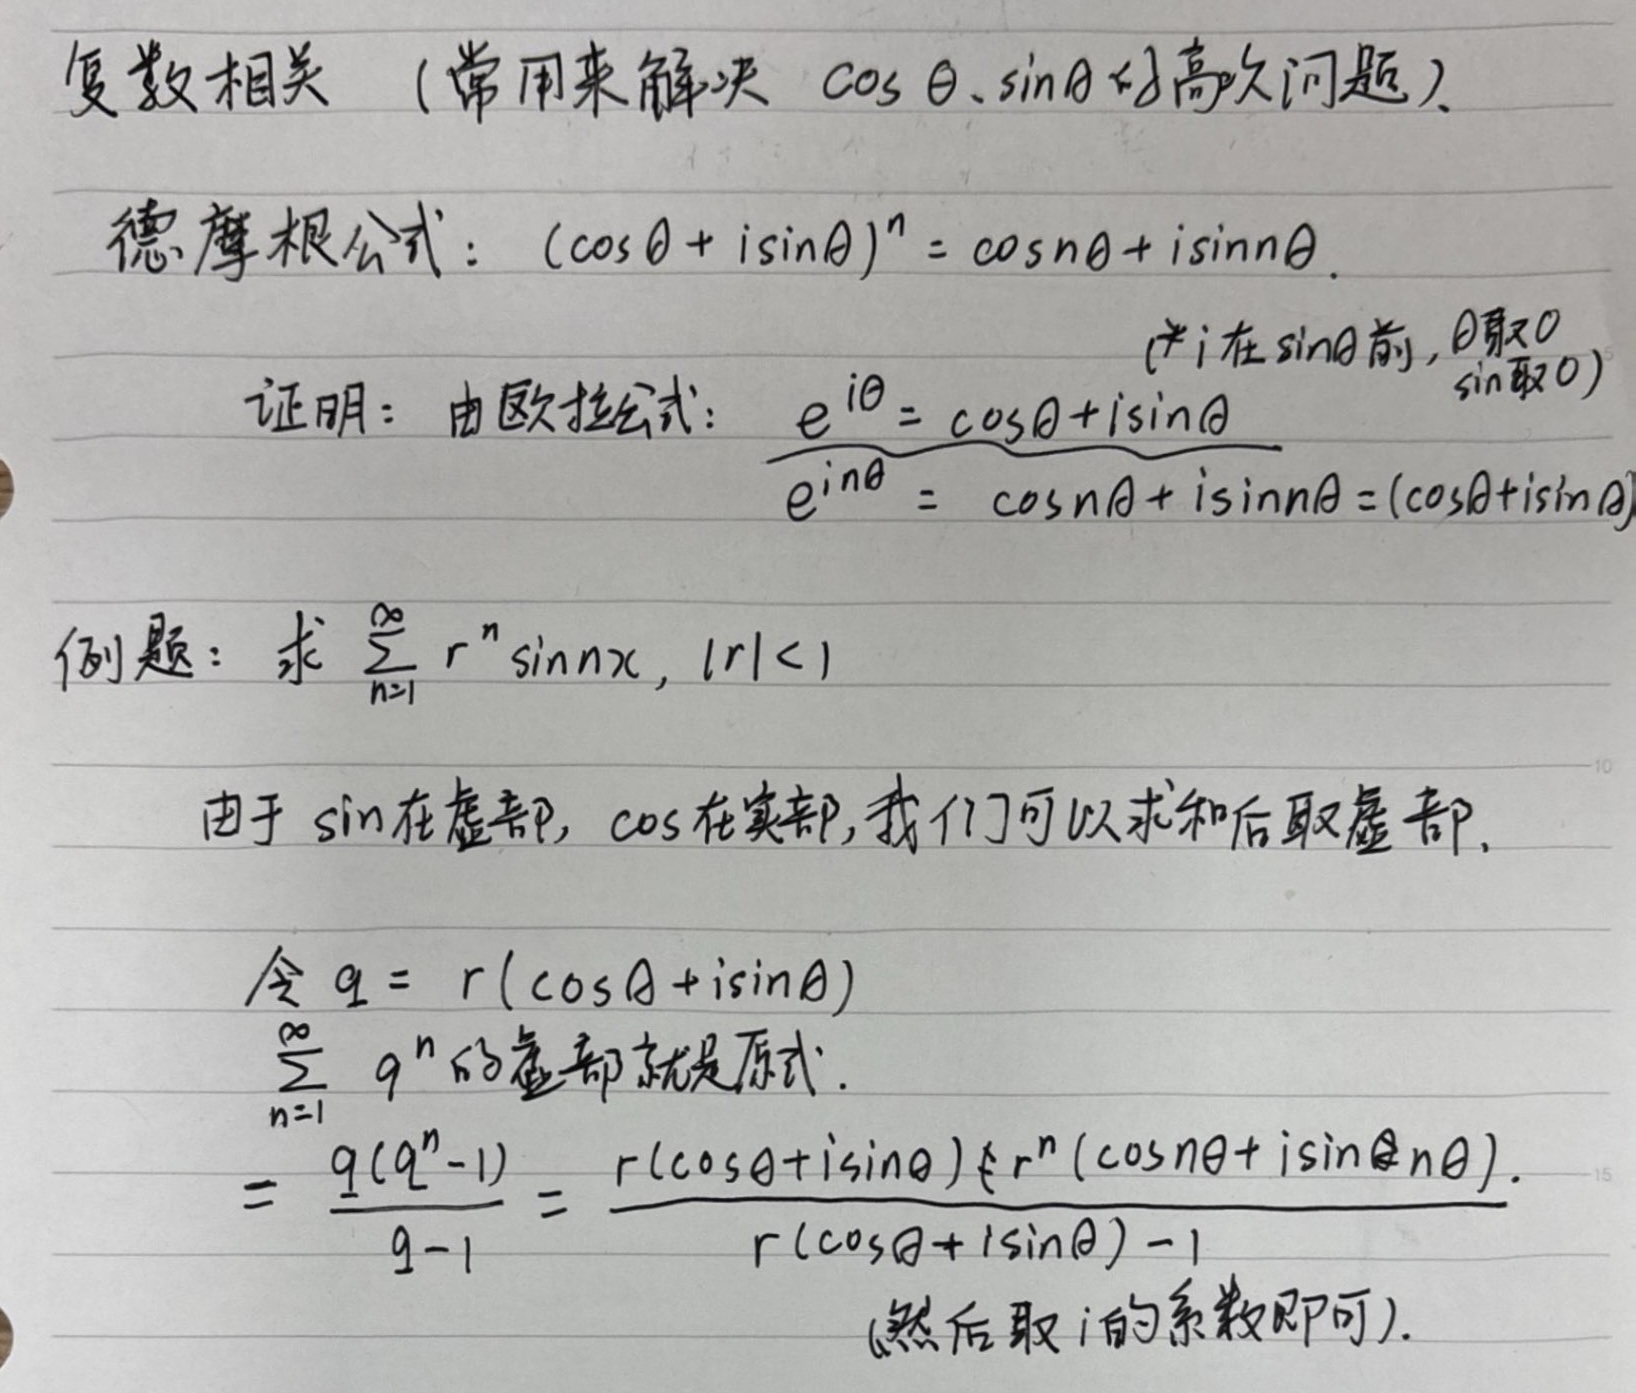 复数相关 (常用来解决 cosθ、sinθ的高次问题).
德摩根公式: (cosθ + isinθ)ⁿ = cosnθ + isinnθ.
(*i在sinθ前, θ取0
sin取0)
证明: 由欧拉公式: e^{iθ} = cosθ+isinθ
e^{inθ} = cosnθ + isinnθ = (cosθ+isinθ)
例题: 求 ∑_{n=1}^{∞} rⁿ sinnx, |r|<1
由于 sin在虚部, cos在实部, 我们可以求和后取虚部.
令 q = r(cosθ+isinθ)
∑_{n=1}^{∞} qⁿ 的虚部就是原式.
= q(qⁿ-1)/(q-1) = r(cosθ+isinθ) rⁿ(cosnθ + isin nθ). / r(cosθ+isinθ)-1
(然后取i的系数即可).